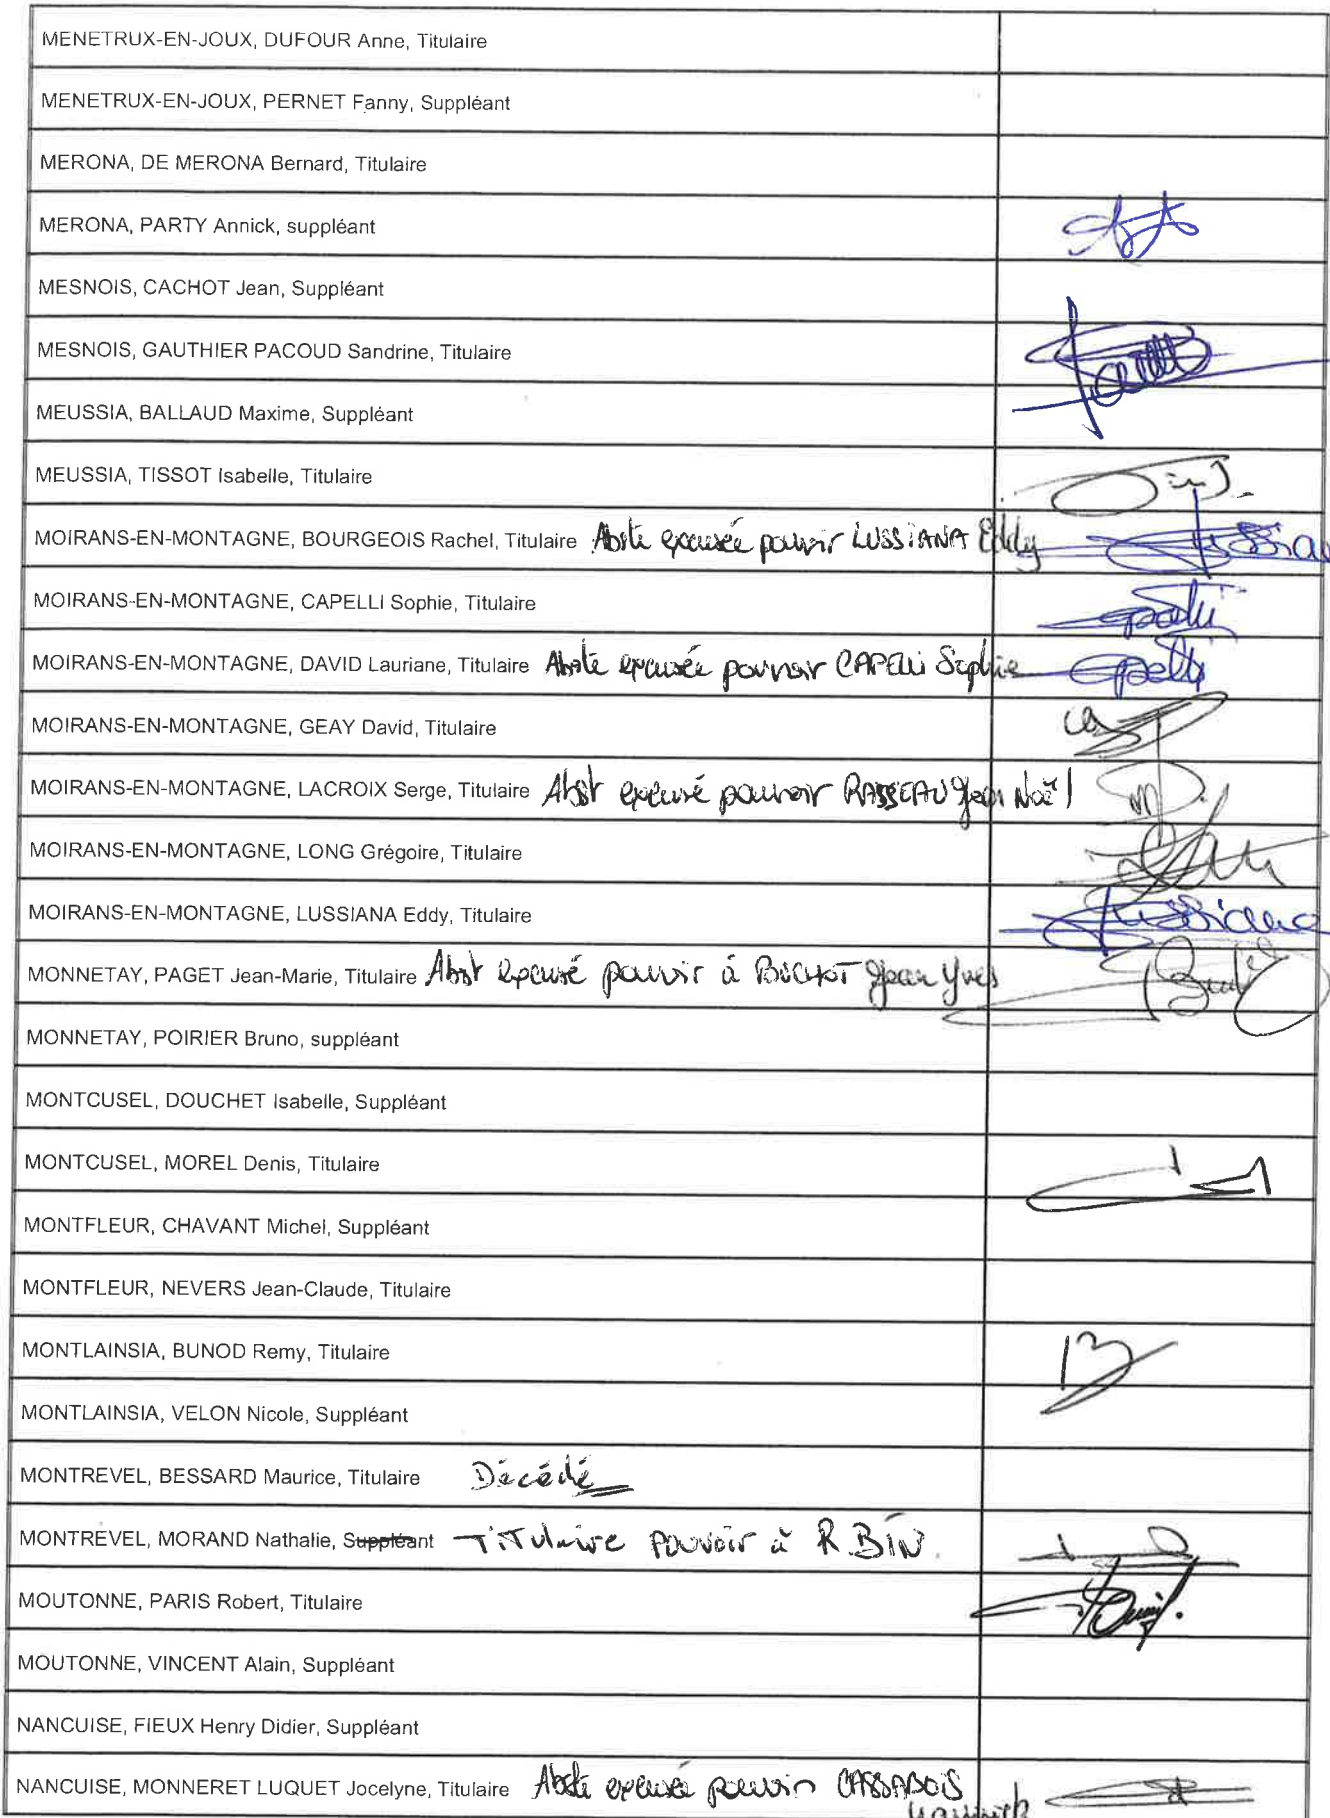 MENETRUX-EN-JOUX, DUFOUR Anne, Titulaire
MENETRUX-EN-JOUX, PERNET Fanny, Suppléant
MERONA, DE MERONA Bernard, Titulaire
MERONA, PARTY Annick, suppléant
MESNOIS, CACHOT Jean, Suppléant
MESNOIS, GAUTHIER PACOUD Sandrine, Titulaire
MEUSSIA, BALLAUD Maxime, Suppléant
MEUSSIA, TISSOT Isabelle, Titulaire
MOIRANS-EN-MONTAGNE, BOURGEOIS Rachel, Titulaire Abste excusée pouvoir LUSSIANA Eddy Lussiana
MOIRANS-EN-MONTAGNE, CAPELLI Sophie, Titulaire
MOIRANS-EN-MONTAGNE, DAVID Lauriane, Titulaire Abste excusée pouvoir CAPELLI Sophie
MOIRANS-EN-MONTAGNE, GEAY David, Titulaire
MOIRANS-EN-MONTAGNE, LACROIX Serge, Titulaire Abst excusé pouvoir RASSEAU Jean Noël
MOIRANS-EN-MONTAGNE, LONG Grégoire, Titulaire
MOIRANS-EN-MONTAGNE, LUSSIANA Eddy, Titulaire Lussiana
MONNETAY, PAGET Jean-Marie, Titulaire Abst excusé pouvoir à BUCHOT Jean Yves
MONNETAY, POIRIER Bruno, suppléant
MONTCUSEL, DOUCHET Isabelle, Suppléant
MONTCUSEL, MOREL Denis, Titulaire
MONTFLEUR, CHAVANT Michel, Suppléant
MONTFLEUR, NEVERS Jean-Claude, Titulaire
MONTLAINSIA, BUNOD Remy, Titulaire
MONTLAINSIA, VELON Nicole, Suppléant
MONTREVEL, BESSARD Maurice, Titulaire Décédé
MONTREVEL, MORAND Nathalie, Suppléant Titulaire pouvoir à R BIN
MOUTONNE, PARIS Robert, Titulaire
MOUTONNE, VINCENT Alain, Suppléant
NANCUISE, FIEUX Henry Didier, Suppléant
NANCUISE, MONNERET LUQUET Jocelyne, Titulaire Abste excusée pouvoir CASSABOIS
Yannick